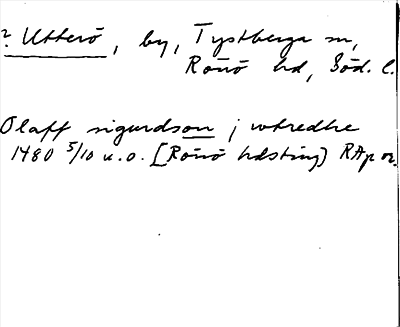 ? Utterö, by, Tystberga sn,
Rönö hd, Söd. l.
Olaff sigurdson j wtredhe
1480 5/10 u.o. [Rönö hdsting) RAp or.